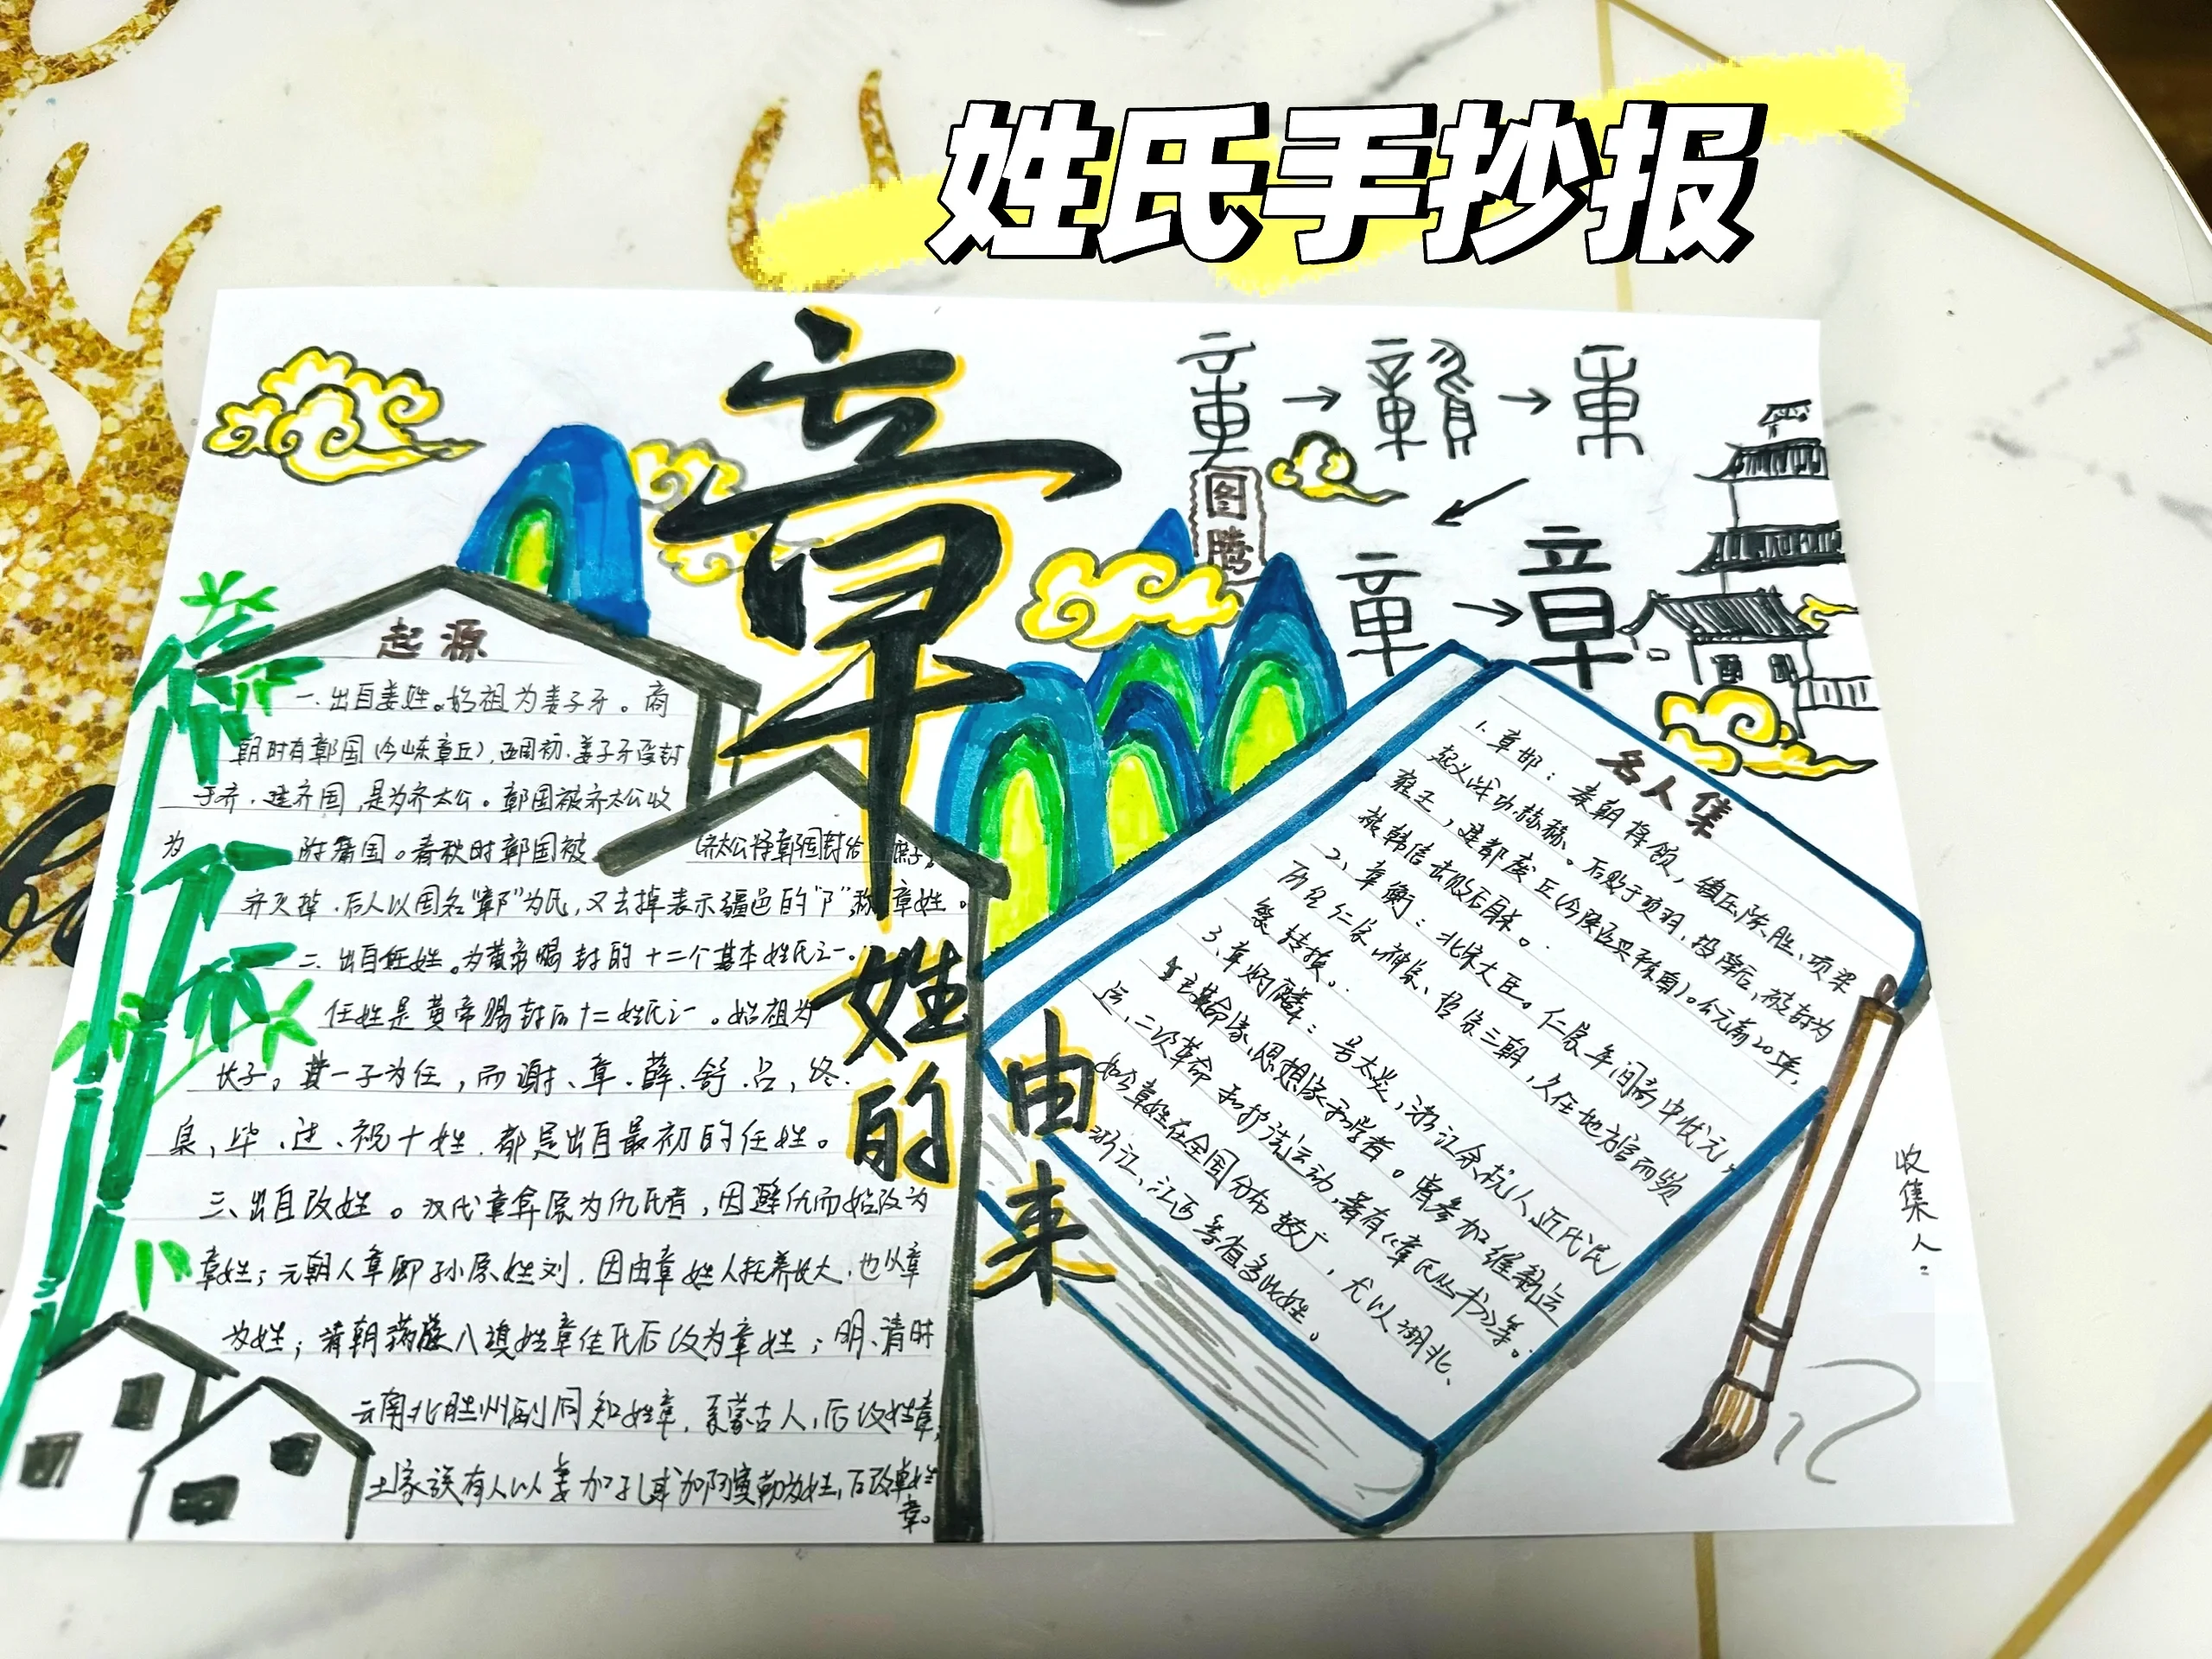 姓氏手抄报
章
姓的
由来
图腾
章
起源
一.出自姜姓。始祖为姜子牙。商
朝时有鄣国(今山东章丘),西周初.姜子牙受封
于齐.建齐国,是为齐太公。鄣国被齐太公收
为 附庸国。春秋时鄣国被 (齐太公将鄣国封给 庶子,
齐灭掉.后人以国名“鄣”为氏,又去掉表示疆邑的“阝”,称章姓。
二.出自任姓。为黄帝赐封的十二个基本姓氏之一.
任姓是黄帝赐封的十二姓氏之一。始祖为
长子,其一子为任,而谢、章.薛.舒.吕,终.
泉,毕.过.祝十姓.都是出自最初的任姓。
三、出自改姓。汉代章弇原为仇氏者,因避仇而始改为
章姓;元朝人章卿孙原姓刘.因由章姓人托养长大.也以章
为姓;清朝满族八旗姓章佳氏后改为章姓;明、清时
云南北胜州副同知姓章,系蒙古人,后改姓章,
土家族有人以姜加孔或加阿寞勒为姓,后改章姓
章。
名人集
1.章邯:秦朝将领,镇压陈胜、项梁
起义,战功赫赫。后败于项羽,投降后,被封为
雍王,建都废丘(今陕西兴平东南)。公元前205年,
被韩信击败后自杀。
2、章衡:北宋大臣。仁宗年间高中状元,
历经仁宗、神宗、哲宗三朝,久任地方官而频
繁转换。
3、章炳麟:号太炎,浙江余杭人,近代民
主革命家、思想家和学者。曾参加维新运
运,二次革命和护法运动,著有《章氏丛书》等。
如今章姓在全国分布较广,尤以湖北、
浙江、江西等省多此姓。
收集人: